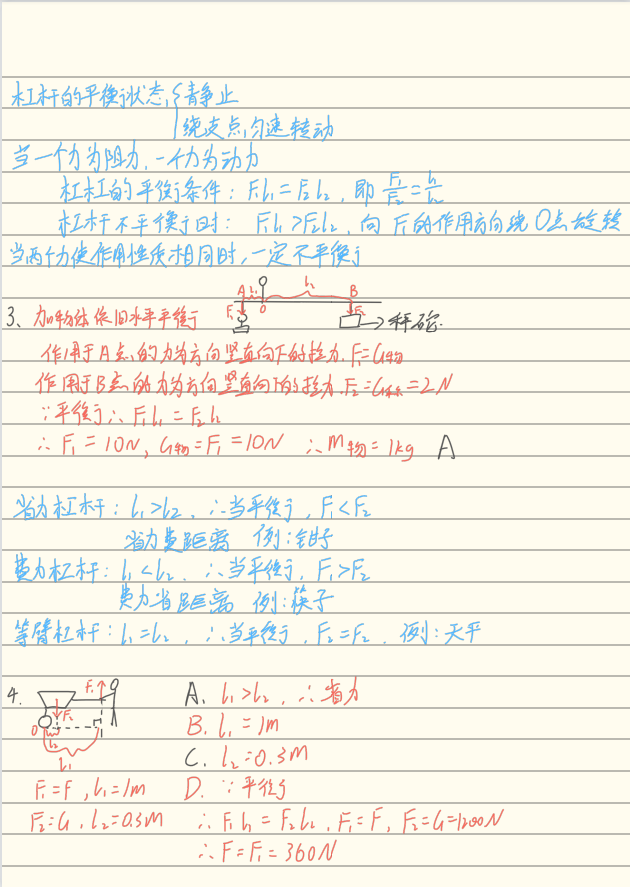 杠杆的平衡状态{静止
绕支点匀速转动
当一个力为阻力,一个力为动力
杠杠的平衡条件:F₁l₁=F₂l₂,即 F₁/F₂=l₂/l₁
杠杆不平衡时:F₁l₁>F₂l₂,向F₁的作用方向绕O点旋转
当两个力使作用性质相同时,一定不平衡
A l₁ l₂ B
F₁ O F₂ →秤砣.
3、加物体依旧水平平衡
作用于A点的力为方向竖直向下的拉力.F₁=G物
作用于B点的力为方向竖直向下的拉力.F₂=G秤砣=2N
∵平衡∴F₁l₁=F₂l₂
∴F₁=10N,G物=F₁=10N ∴m物=1kg A
省力杠杆:l₁>l₂,∴当平衡,F₁<F₂
省力费距离 例:钳子
费力杠杆:l₁<l₂.∴当平衡,F₁>F₂
费力省距离 例:筷子
等臂杠杆:l₁=l₂,∴当平衡,F₂=F₂.例:天平
4. F₁ F₂ O l₂ l₁
A. l₁>l₂,∴省力
B. l₁=1m
C. l₂=0.3M
F₁=F,l₁=1m D. ∵平衡
F₂=G,l₂=0.3M ∴F₁l₁=F₂l₂,F₁=F,F₂=G=1200N
∴F=F₁=360N